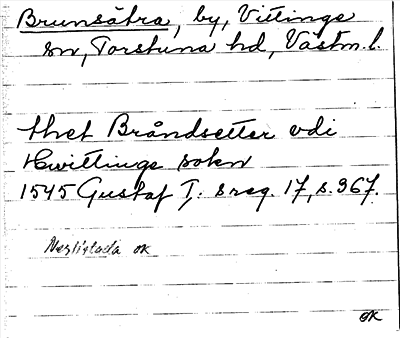 Brunsätra, by, Vittinge
sn, Torstuna hd, Västm. l.
thet Bråndsetter vdi
Hwittinge sokn
1545 Gustaf I: s reg. 17, s. 367.
ok
OK